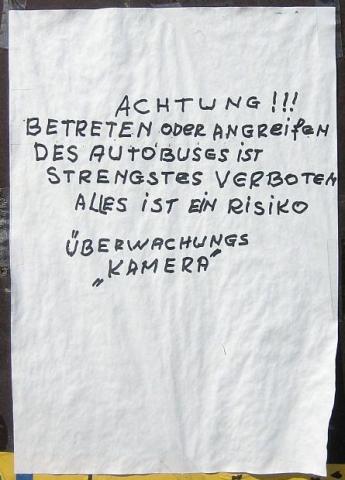 ACHTUNG!!!
BETRETEN ODER ANGREifEN
DES AUTOBUSES iST
STRENGSTES VERBOTEN
ALLES IST EIN RISIKO
ÜBERWACHUNGS
„KAMERA“